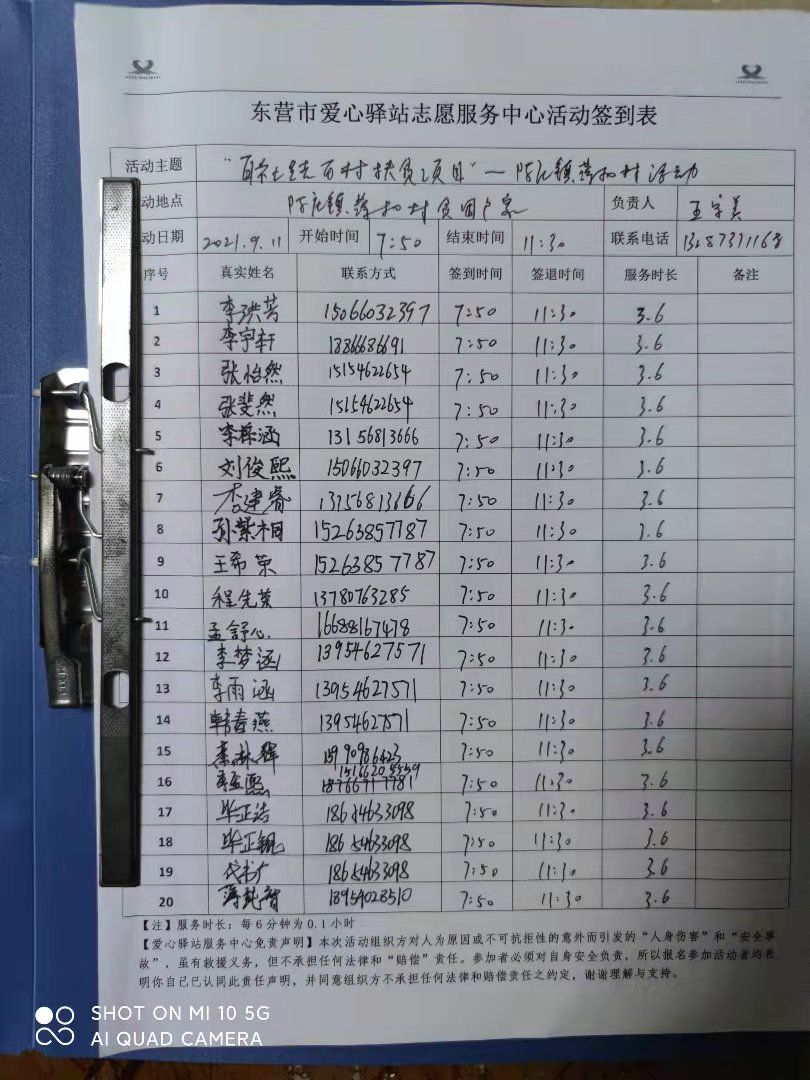 东营市爱心驿站志愿服务中心活动签到表
活动主题 "百社联百村扶贫项目"—陈庄镇薄扣村活动
动地点 陈庄镇薄扣村贫困户家 负责人 王字美
动日期 2021.9.11 开始时间 7:50 结束时间 11:30 联系电话
序号 真实姓名 联系方式 签到时间 签退时间 服务时长 备注
1 李洪芳 15066032397 7:50 11:30 3.6
2 李宇轩 13866686691 7:50 11:30 3.6
3 张怡然 15154622654 7:50 11:30 3.6
4 张斐然 15154622654 7:50 11:30 3.6
5 李梓涵 13156813666 7:50 11:30 3.6
6 刘俊熙 15066032397 7:50 11:30 3.6
7 李建睿 13156813666 7:50 11:30 3.6
8 孙紫桐 15263857787 7:50 11:30 3.6
9 王希荣 15263857787 7:50 11:30 3.6
10 程先荣 13780763285 7:50 11:30 3.6
11 孟舒心 16688167478 7:50 11:30 3.6
12 李梦涵 13954627571 7:50 11:30 3.6
13 李雨涵 13954627571 7:50 11:30 3.6
14 韩春燕 13954627571 7:50 11:30 3.6
15 7:50 11:30 3.6
16 7:50 11:30 3.6
17 毕正浩 18654633098 7:50 11:30 3.6
18 18654633098 7:50 11:30 3.6
19 18654633098 7:50 11:30 3.6
20 7:50 11:30 3.6
【注】服务时长：每6分钟为0.1小时
【爱心驿站服务中心免责声明】本次活动组织方对人为原因或不可抗拒性的意外而引发的"人身伤害"和"安全事
故"，虽有救援义务，但不承担任何法律和"赔偿"责任。参加者必须对自身安全负责，所以报名参加活动者均表
明你自己已认同此责任声明，并同意组织方不承担任何法律和赔偿责任之约定，谢谢理解与支持。
SHOT ON MI 10 5G
AI QUAD CAMERA